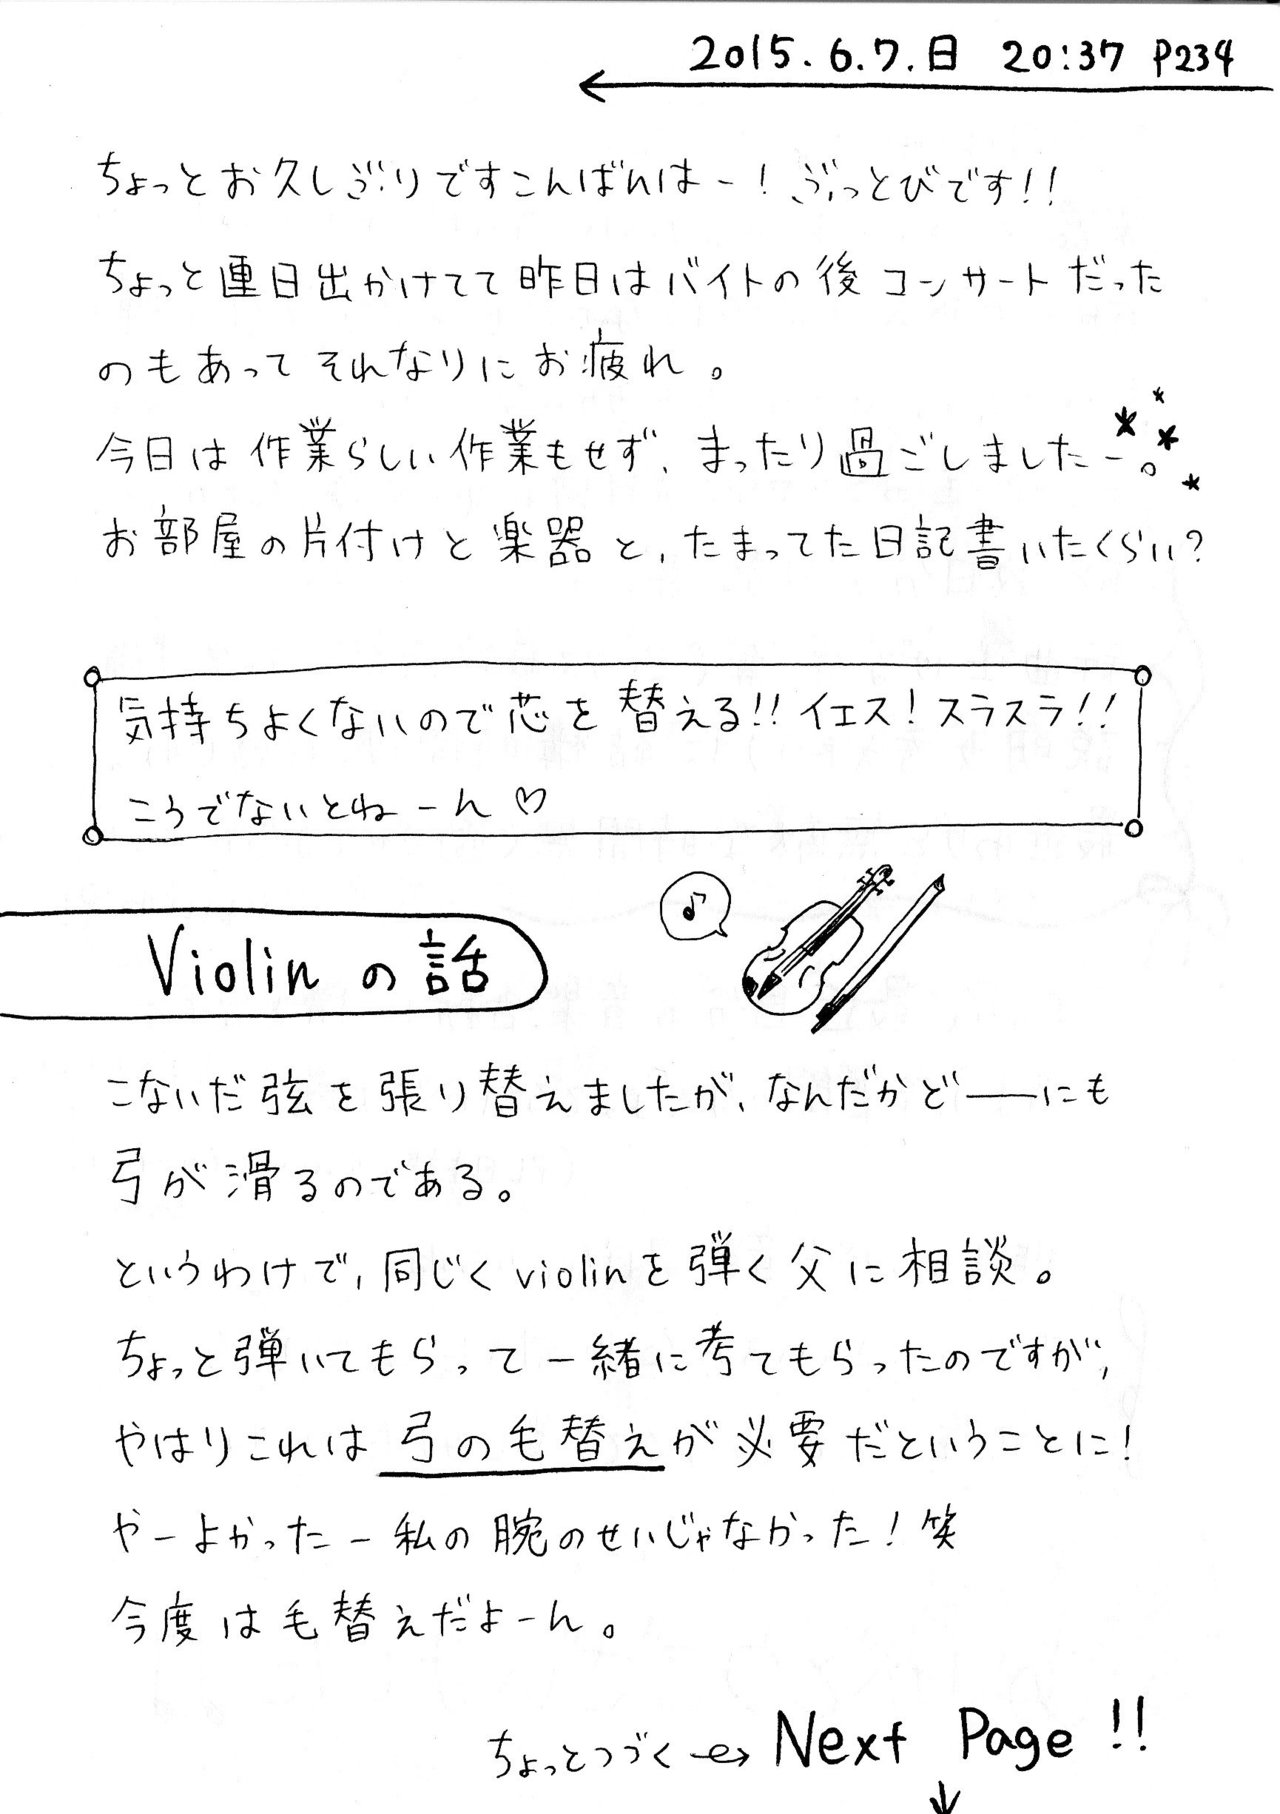 2015.6.7.日 20:37 P234
ちょっとお久しぶりですこんばんはー！ぶっとびです！！
ちょっと連日出かけてて昨日はバイトの後コンサートだった
のもあってそれなりにお疲れ。
今日は作業らしい作業もせず、まったり過ごしましたー。
お部屋の片付けと楽器と、たまってた日記書いたくらい？
気持ちよくないので芯を替える！！イエス！スラスラ！！
こうでないとねーん♡
Violinの話
♪
こないだ弦を張り替えましたが、なんだかど――にも
弓が滑るのである。
というわけで、同じくviolinを弾く父に相談。
ちょっと弾いてもらって一緒に考てもらったのですが、
やはりこれは弓の毛替えが必要だということに！
やーよかったー私の腕のせいじゃなかった！笑
今度は毛替えだよーん。
ちょっとつづく→ Next Page !!